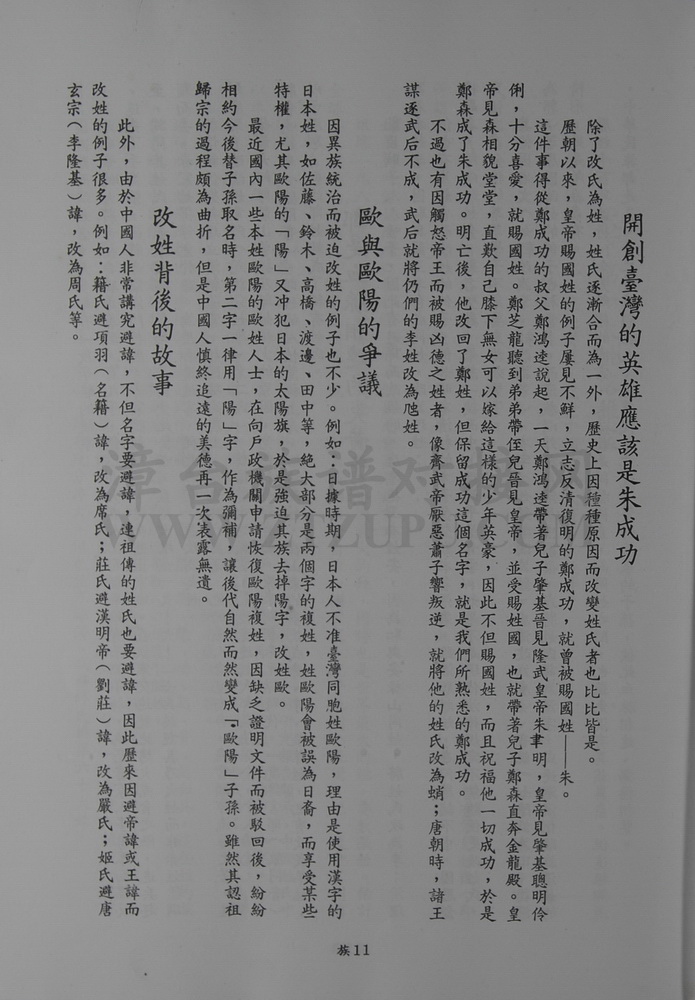 開創臺灣的英雄應該是朱成功
除了改氏為姓，姓氏逐漸合而為一外，歷史上因種種原因而改變姓氏者也比比皆是。
歷朝以來，皇帝賜國姓的例子屢見不鮮，立志反清復明的鄭成功，就曾被賜國姓——朱。
這件事得從鄭成功的叔父鄭鴻逵說起，一天鄭鴻逵帶著兒子肇基晉見隆武皇帝朱聿明，皇帝見肇基聰明伶
俐，十分喜愛，就賜國姓。鄭芝龍聽到弟弟帶侄兒晉見皇帝，並受賜姓國，也就帶著兒子鄭森直奔金龍殿。皇
帝見森相貌堂堂，直歎自己膝下無女可以嫁給這樣的少年英豪，因此不但賜國姓，而且祝福他一切成功，於是
鄭森成了朱成功。明亡後，他改回了鄭姓，但保留成功這個名字，就是我們所熟悉的鄭成功。
不過也有因觸怒帝王而被賜凶德之姓者，像齊武帝厭惡蕭子響叛逆，就將他的姓氏改為蛸；唐朝時，諸王
謀逐武后不成，武后就將仍們的李姓改為虺姓。
歐與歐陽的爭議
因異族統治而被迫改姓的例子也不少。例如：日據時期，日本人不准臺灣同胞姓歐陽，理由是使用漢字的
日本姓，如佐藤、鈴木、高橋、渡邊、田中等，絕大部分是兩個字的複姓，姓歐陽會被誤為日裔，而享受某些
特權，尤其歐陽的「陽」又冲犯日本的太陽旗，於是強迫其族去掉陽字，改姓歐。
最近國內一些本姓歐陽的歐姓人士，在向戶政機關申請恢復歐陽複姓，因缺乏證明文件而被駁回後，紛紛
相約今後替子孫取名時，第二字一律用「陽」字，作為彌補，讓後代自然而然變成「歐陽」子孫。雖然其認祖
歸宗的過程頗為曲折，但是中國人慎終追遠的美德再一次表露無遺。
改姓背後的故事
此外，由於中國人非常講究避諱，不但名字要避諱，連祖傳的姓氏也要避諱，因此歷來因避帝諱或王諱而
改姓的例子很多。例如：籍氏避項羽（名籍）諱，改為席氏；莊氏避漢明帝（劉莊）諱，改為嚴氏；姬氏避唐
玄宗（李隆基）諱，改為周氏等。
族11